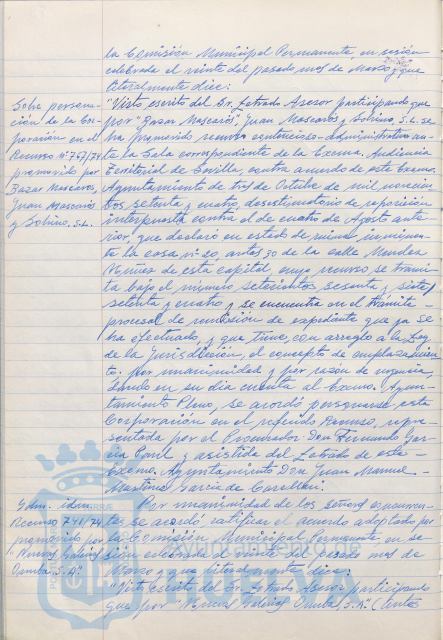 la Comisión Municipal Permanente, en sesión
celebrada el veinte del pasado mes de Marzo y que
literalmente dice:
Sobre persona-
ción de la Cor-
poración en el
Recurso nº 767/74
promovido por
Bazar Mascarós,
Juan Mascarós
y Sobrino, S.L.
"Visto escrito del Sr. Letrado Asesor participando que
por "Bazar Mascarós", Juan Mascarós y Sobrino, S.L. se
ha promovido recurso contencioso-administrativo an-
te la Sala correspondiente de la Excma. Audiencia
Territorial de Sevilla, contra acuerdo de este Excmo.
Ayuntamiento de tres de Octubre de mil novecien-
tos setenta y cuatro, desestimatorio de reposición
interpuesta contra el de cuatro de Agosto ante-
rior, que declaró en estado de ruina inminen-
te la casa nº 20, antes 30 de la calle Mendez
Nuñez de esta capital, cuyo recurso se trami-
ta bajo el número setecientos sesenta y siete/
setenta y cuatro y se encuentra en el trámite
procesal de remisión de expediente que ya se
ha efectuado, y que tiene, con arreglo a la Ley
de la Jurisdicción, el concepto de emplazamien-
to. Por unanimidad y por razón de urgencia,
dando en su día cuenta al Excmo. Ayun-
tamiento Pleno, se acordó personarse esta
Corporación en el referido Recurso, repre-
sentada por el Procurador Don Fernando Gar-
cía Parul y asistida del Letrado de este
Excmo. Ayuntamiento Don Juan Manuel
Martínez García de
Idm. idm.
Recurso 741/74
promovido por
"Nuevos
S.A."
Por unanimidad de los Señores concurren-
tes, se acordó ratificar el acuerdo adoptado por
la Comisión Municipal Permanente en se-
sión celebrada el veinte del pasado mes de
Marzo y que literalmente dice:
"Visto escrito del Sr. Letrado Asesor participando
que por "Nuevos S.A." (antes
HUELVA